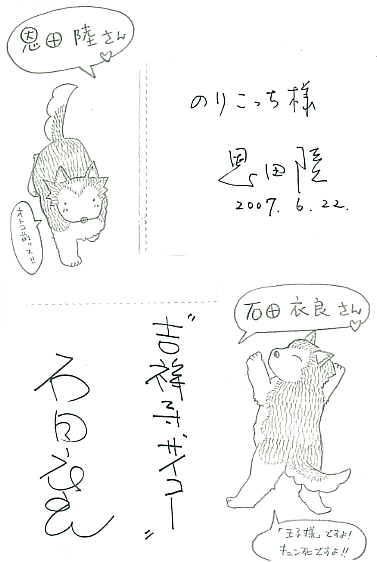 恩田 陸さん
のりこっち様
恩田陸
2007. 6. 22.
オトコ前ッス!!
石田 衣良さん
"吉祥寺サイコー"
石田衣良
「王子様」ですよ!
キュン死ですよ!!